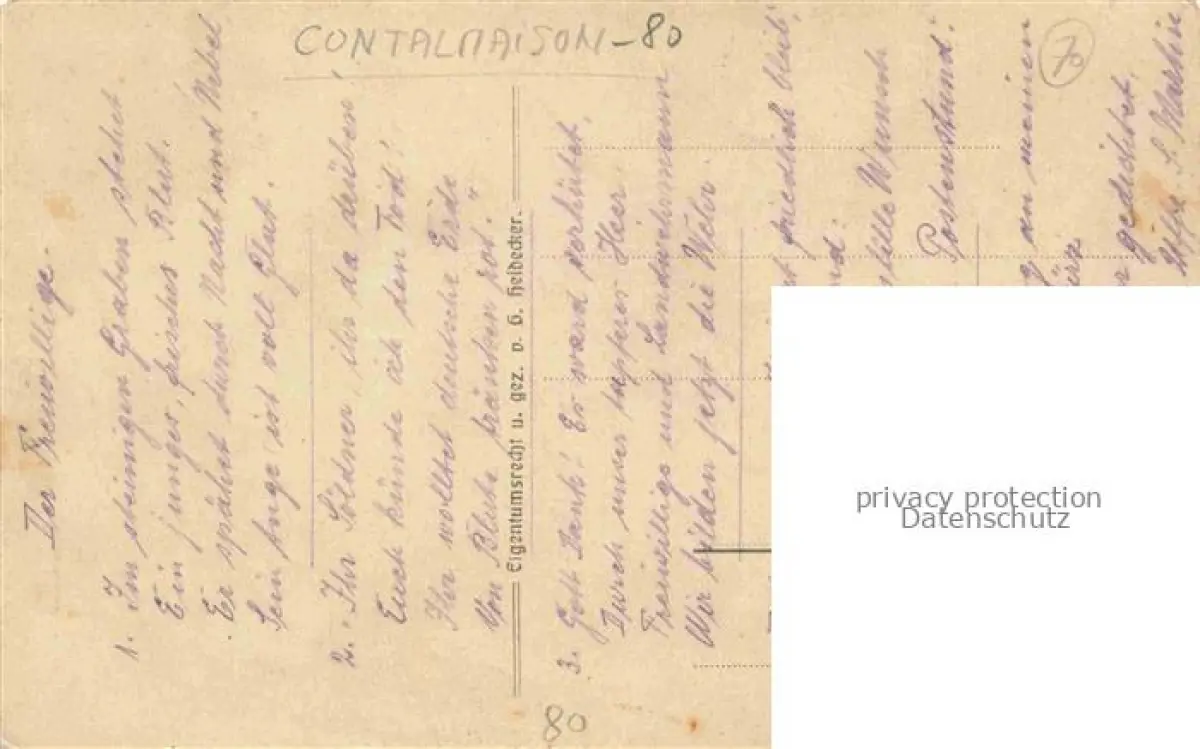 CONTALMAISON-80
70
Der Freiwillige.
1. Im steinigen Graben stehet
Ein junges, frisches Blut.
Er spähet durch Nacht und Nebel
Sein Auge ist voll Glut.
2. "Ihr Söldner, ihr da drüben!
Euch künde ich den Tod!
Ihr wolltet deutsche Erde
Von Blute tränken rot."
Eigentumsrecht u. gez. v. G. Heidecker.
3. Gott Dank! Es ward verhütet,
Durch unser tapferes Heer.
Freiwillige und Landwehrmann
Wir bilden jetzt die Wehr.
friedlich bleib',
stille Wunsch
Postenstund!
an meinen
gedichtet,
S. Martin
80
privacy protection
Datenschutz